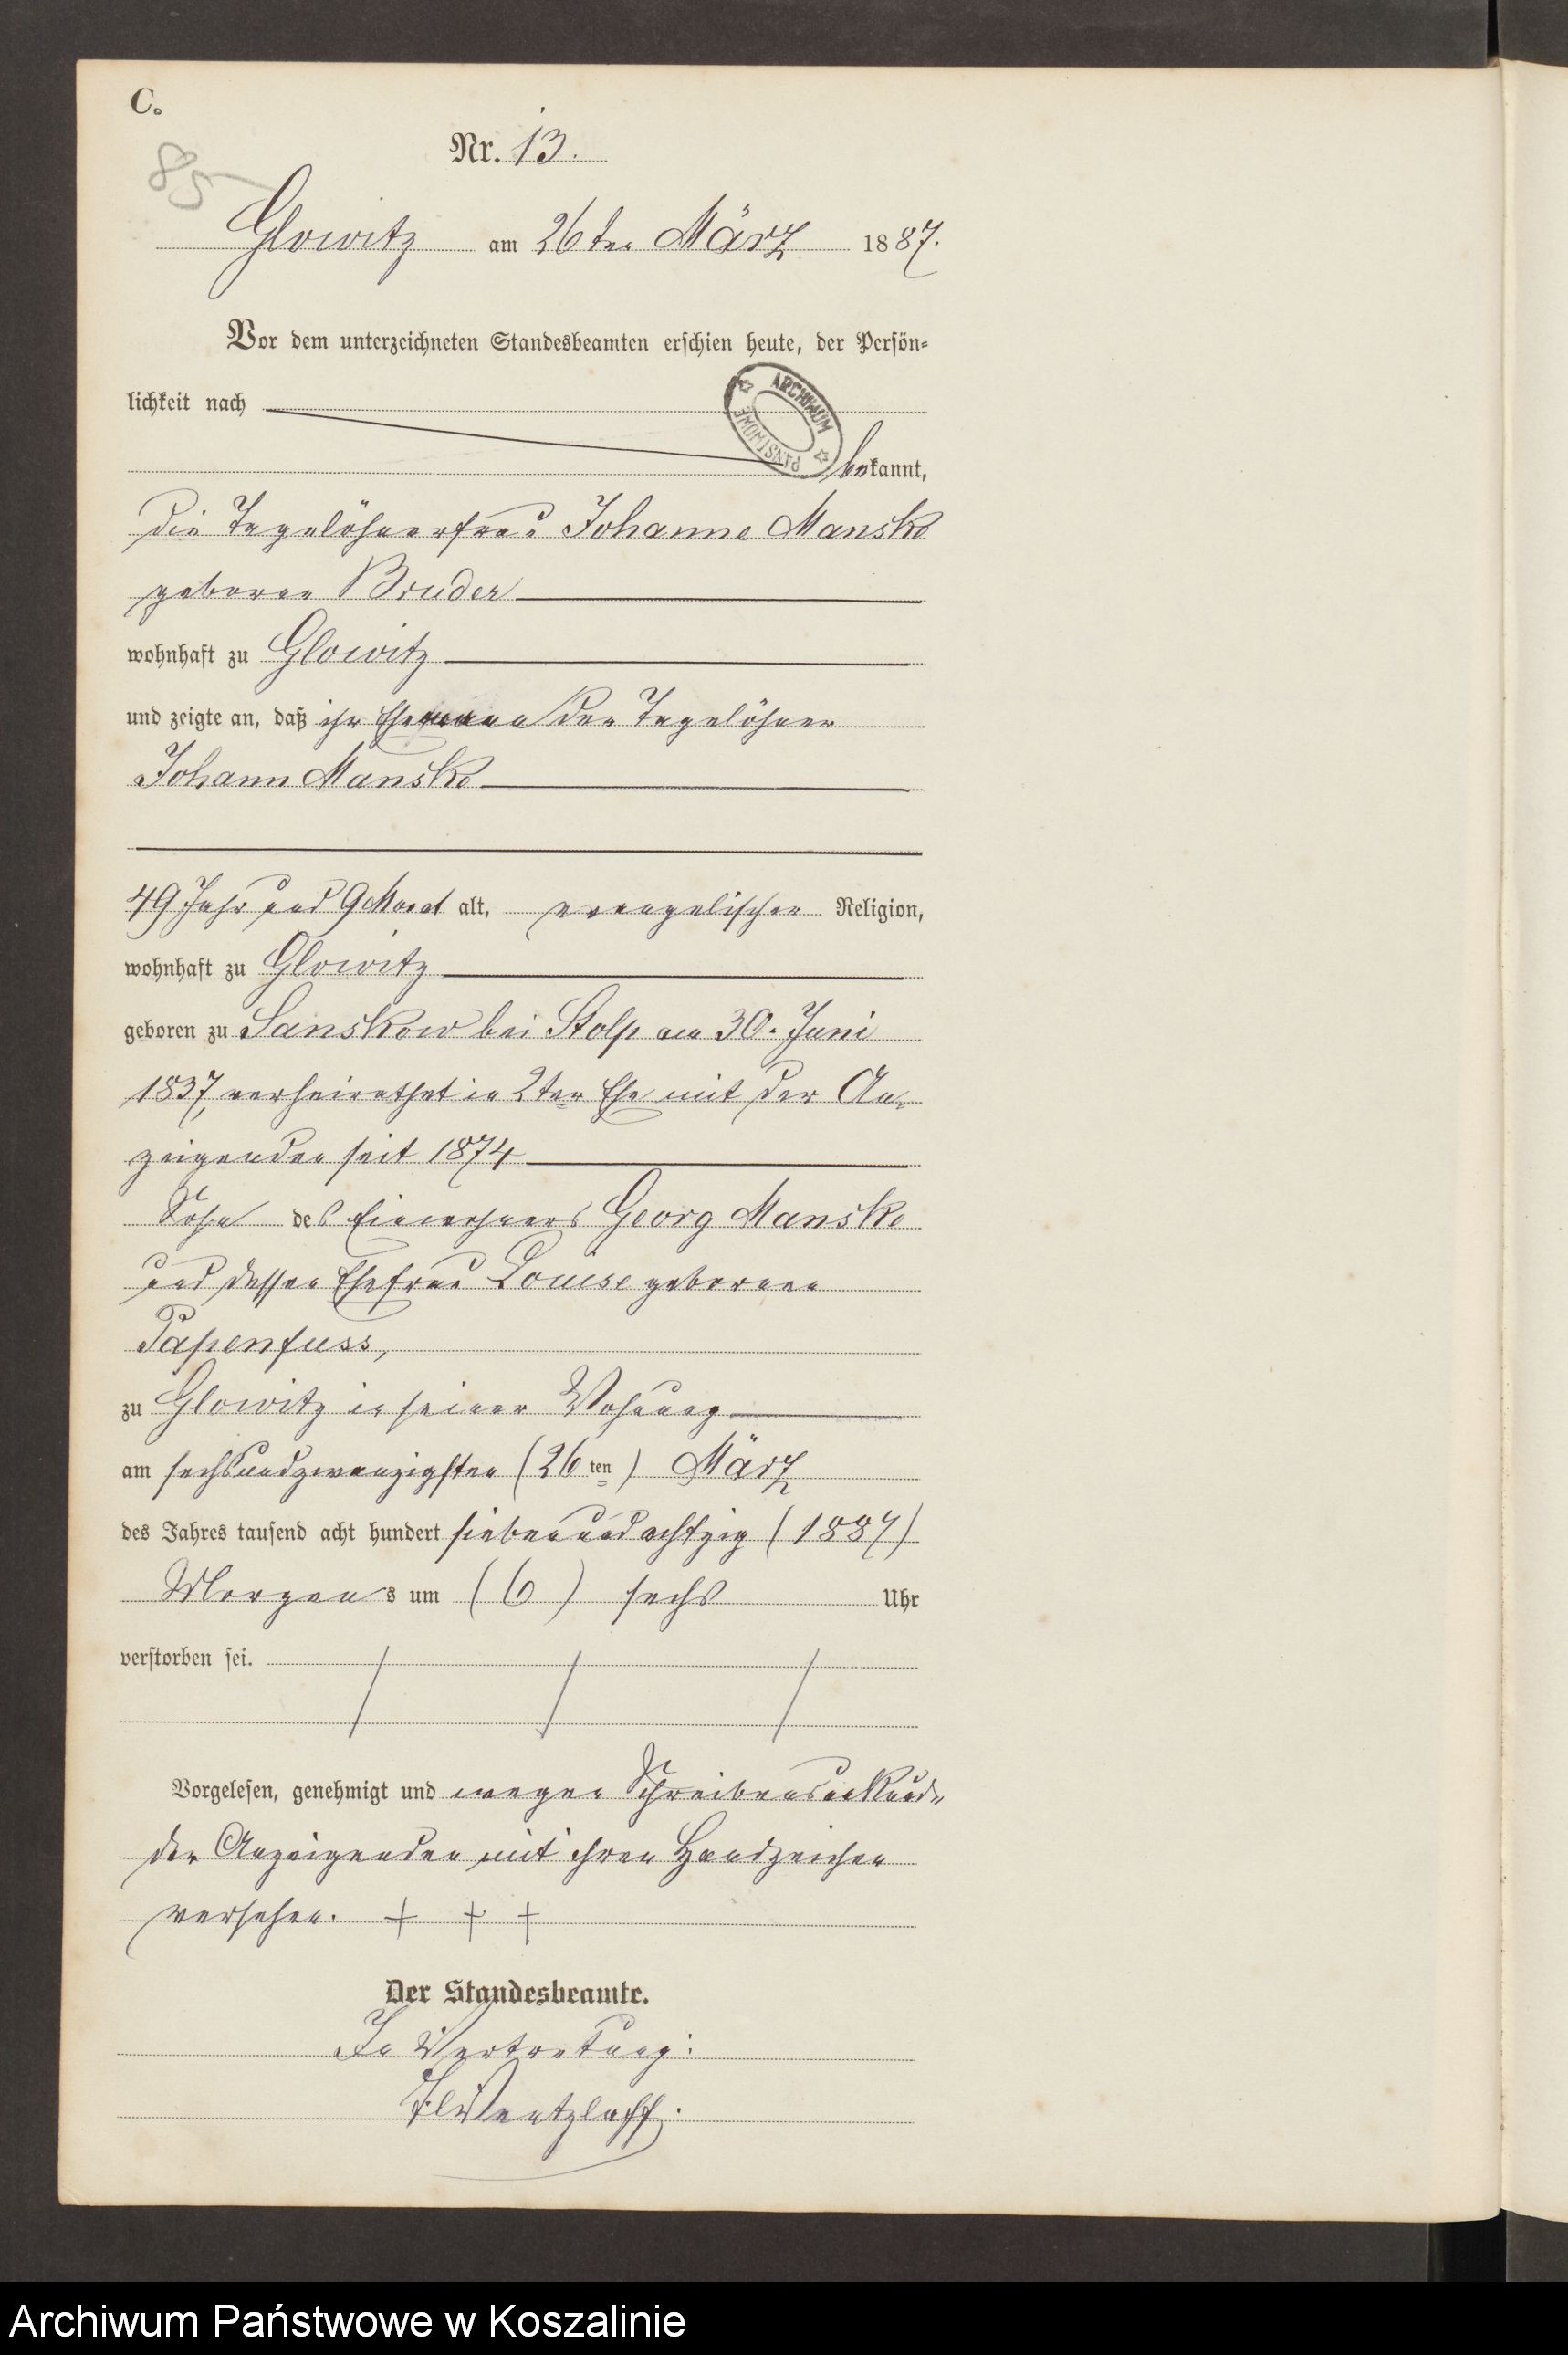 C.
85
Nr. 13.
Glowitz am 26ten März 1887.
Vor dem unterzeichneten Standesbeamten erschien heute, der Persön-
lichkeit nach
ARCHIWUM PAŃSTWOWE
bekannt,
die Tagelöhnerfrau Johanne Manske
geboren Bruder
wohnhaft zu Glowitz
und zeigte an, daß ihr Ehemann der Tagelöhner
Johann Manske
49 Jahr und 9 Monat alt, evangelischer Religion,
wohnhaft zu Glowitz
geboren zu Sanskow bei Stolp am 30. Juni
1837, verheirathet in 2ter Ehe mit der An-
zeigenden seit 1874
Sohn des Einwohners Georg Manske
und dessen Ehefrau Louise geborenen
Papenfuss,
zu Glowitz in seiner Wohnung
am sechsundzwanzigsten (26ten) März
des Jahres tausend acht hundert siebenundachtzig (1887)
Morgens um (6) sechs Uhr
verstorben sei.
Vorgelesen, genehmigt und wegen Schreibensunkunde
der Anzeigenden mit ihren Handzeichen
versehen. + + +
Der Standesbeamte.
In Vertretung:
Wentzlaff.
Archiwum Państwowe w Koszalinie